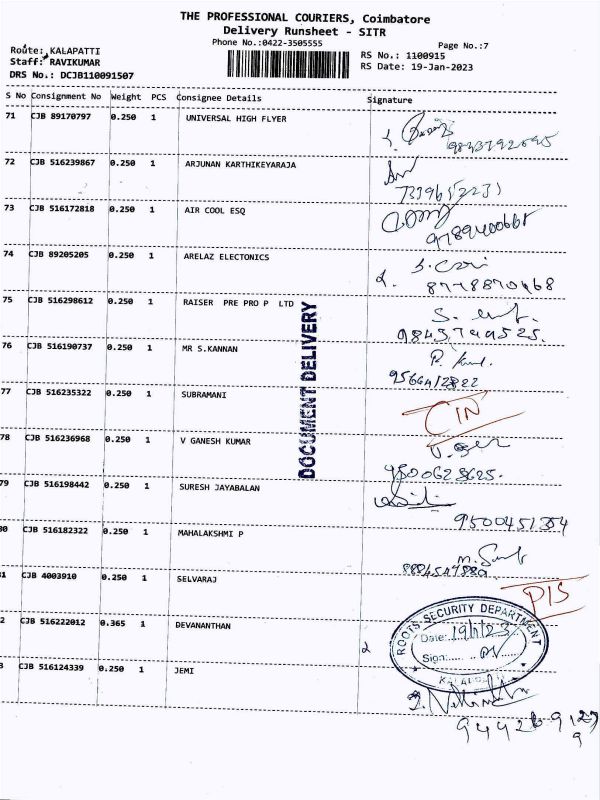 THE PROFESSIONAL COURIERS, Coimbatore
Delivery Runsheet - SITR
Phone No.:0422-3505555
Page No.:7
Route: KALAPATTI
Staff: RAVIKUMAR
DRS No.: DCJB110091507
RS No.: 1100915
RS Date: 19-Jan-2023
S No Consignment No Weight PCS Consignee Details Signature
71 CJB 89170797 0.250 1 UNIVERSAL HIGH FLYER
72 CJB 516239867 0.250 1 ARJUNAN KARTHIKEYARAJA
73 CJB 516172818 0.250 1 AIR COOL ESQ
74 CJB 89205205 0.250 1 ARELAZ ELECTONICS
75 CJB 516298612 0.250 1 RAISER PRE PRO P LTD
76 CJB 516190737 0.250 1 MR S.KANNAN
77 CJB 516235322 0.250 1 SUBRAMANI
CIN
78 CJB 516236968 0.250 1 V GANESH KUMAR
79 CJB 516198442 0.250 1 SURESH JAYABALAN
9500451354
80 CJB 516182322 0.250 1 MAHALAKSHMI P
1 CJB 4003910 0.250 1 SELVARAJ
PIS
2 CJB 516222012 0.365 1 DEVANANTHAN
3 CJB 516124339 0.250 1 JEMI
DOCUMENT DELIVERY
ROOTS SECURITY DEPARTMENT
Date: 19/1/23
Sign: